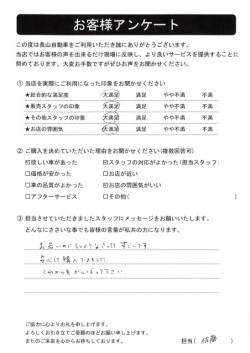 お客様アンケート
この度は長山自動車をご利用いただき誠にありがとうございます。
当店ではお客様の声を出来るだけ現場に反映し、より良いサービスを提供することに
努めております。大変お手数ですがぜひお声をお聞かせください。
① 当店を実際にご利用になった印象をお聞かせください
★総合的な満足度 大満足 満足 やや不満 不満
★販売スタッフの印象 大満足 満足 やや不満 不満
★その他スタッフの印象 大満足 満足 やや不満 不満
★お店の雰囲気 大満足 満足 やや不満 不満
② ご購入を決めていただいた理由をお聞かせください(複数回答可)
☑欲しい車があった ☑スタッフの対応がよかった(担当スタッフ:
□価格が安かった ☑お店が近い
□車の品質がよかった ☑お店の雰囲気がいい
□アフターサービス □その他(
③ 担当させていただきましたスタッフにメッセージをお願いいたします。
どんなにささいな事でも皆様の言葉が私共の力になります。
安心して購入できました。
これからもがんばって下さい
ご協力に心よりお礼を申し上げます。
よろしくお引き立てご愛顧のほどお願い申し上げます。
またのご来店を心からお待ちしております。
担当( 佐藤 )